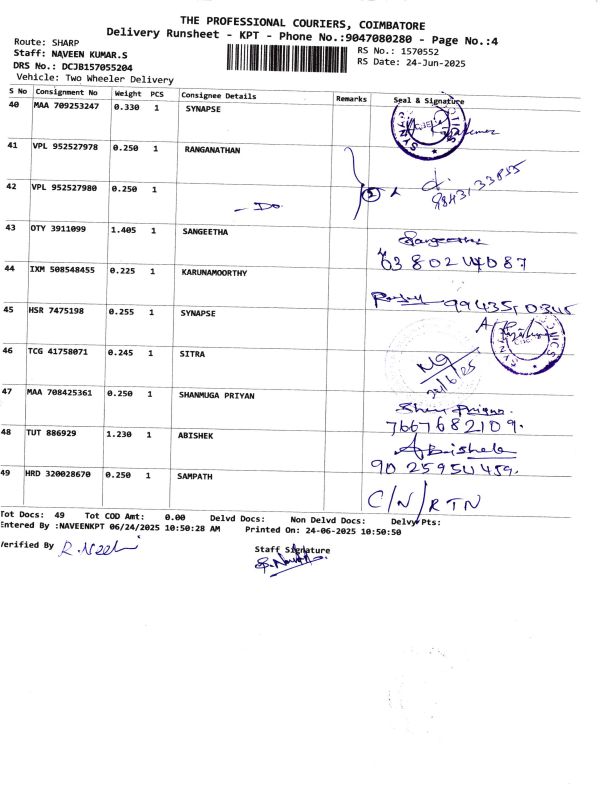 THE PROFESSIONAL COURIERS, COIMBATORE
Delivery Runsheet - KPT - Phone No.:9047080280 - Page No.:4
Route: SHARP
RS No.: 1570552
Staff: NAVEEN KUMAR.S
RS Date: 24-Jun-2025
DRS No.: DCJB157055204
Vehicle: Two Wheeler Delivery
S No Consignment No Weight PCS Consignee Details Remarks Seal & Signature
40 MAA 709253247 0.330 1 SYNAPSE
41 VPL 952527978 0.250 1 RANGANATHAN
42 VPL 952527980 0.250 1 - Do
43 OTY 3911099 1.405 1 SANGEETHA Sangeetha
44 IXM 508548455 0.225 1 KARUNAMOORTHY
45 HSR 7475198 0.255 1 SYNAPSE
46 TCG 41758071 0.245 1 SITRA
24/6/25
47 MAA 708425361 0.250 1 SHANMUGA PRIYAN
7667682109.
48 TUT 886929 1.230 1 ABISHEK Abishek
9025954459.
49 HRD 320028670 0.250 1 SAMPATH C/N/RTN
Tot Docs: 49 Tot COD Amt: 0.00 Delvd Docs: Non Delvd Docs: Delvy Pts:
Entered By :NAVEENKPT 06/24/2025 10:50:28 AM Printed On: 24-06-2025 10:50:50
Verified By
Staff Signature